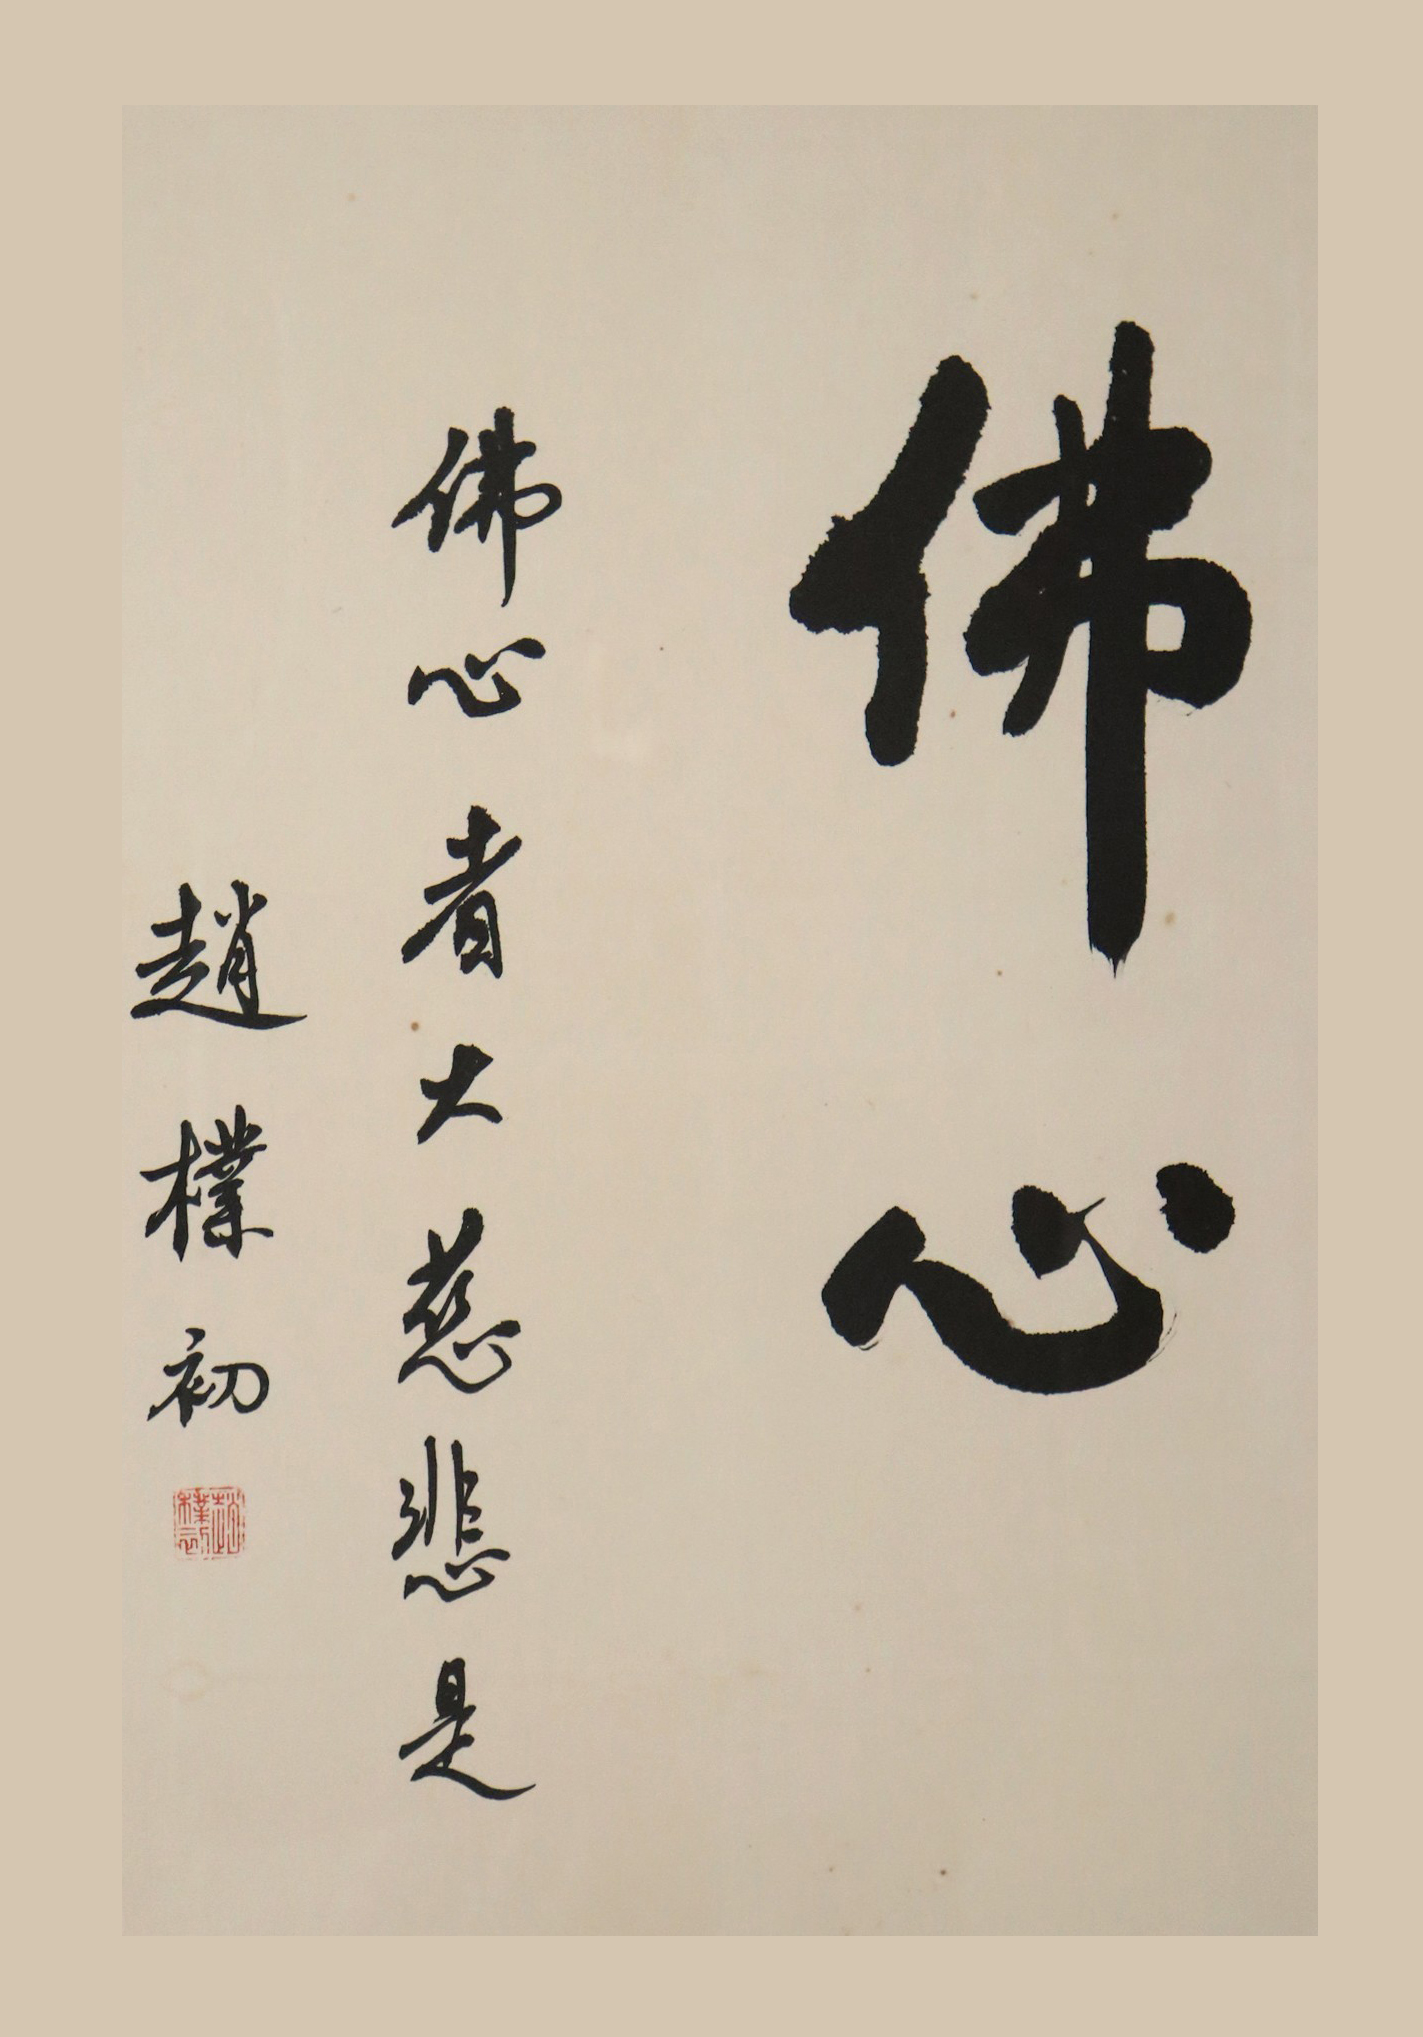 佛心
佛心者大慈悲是
趙樸初
趙樸初